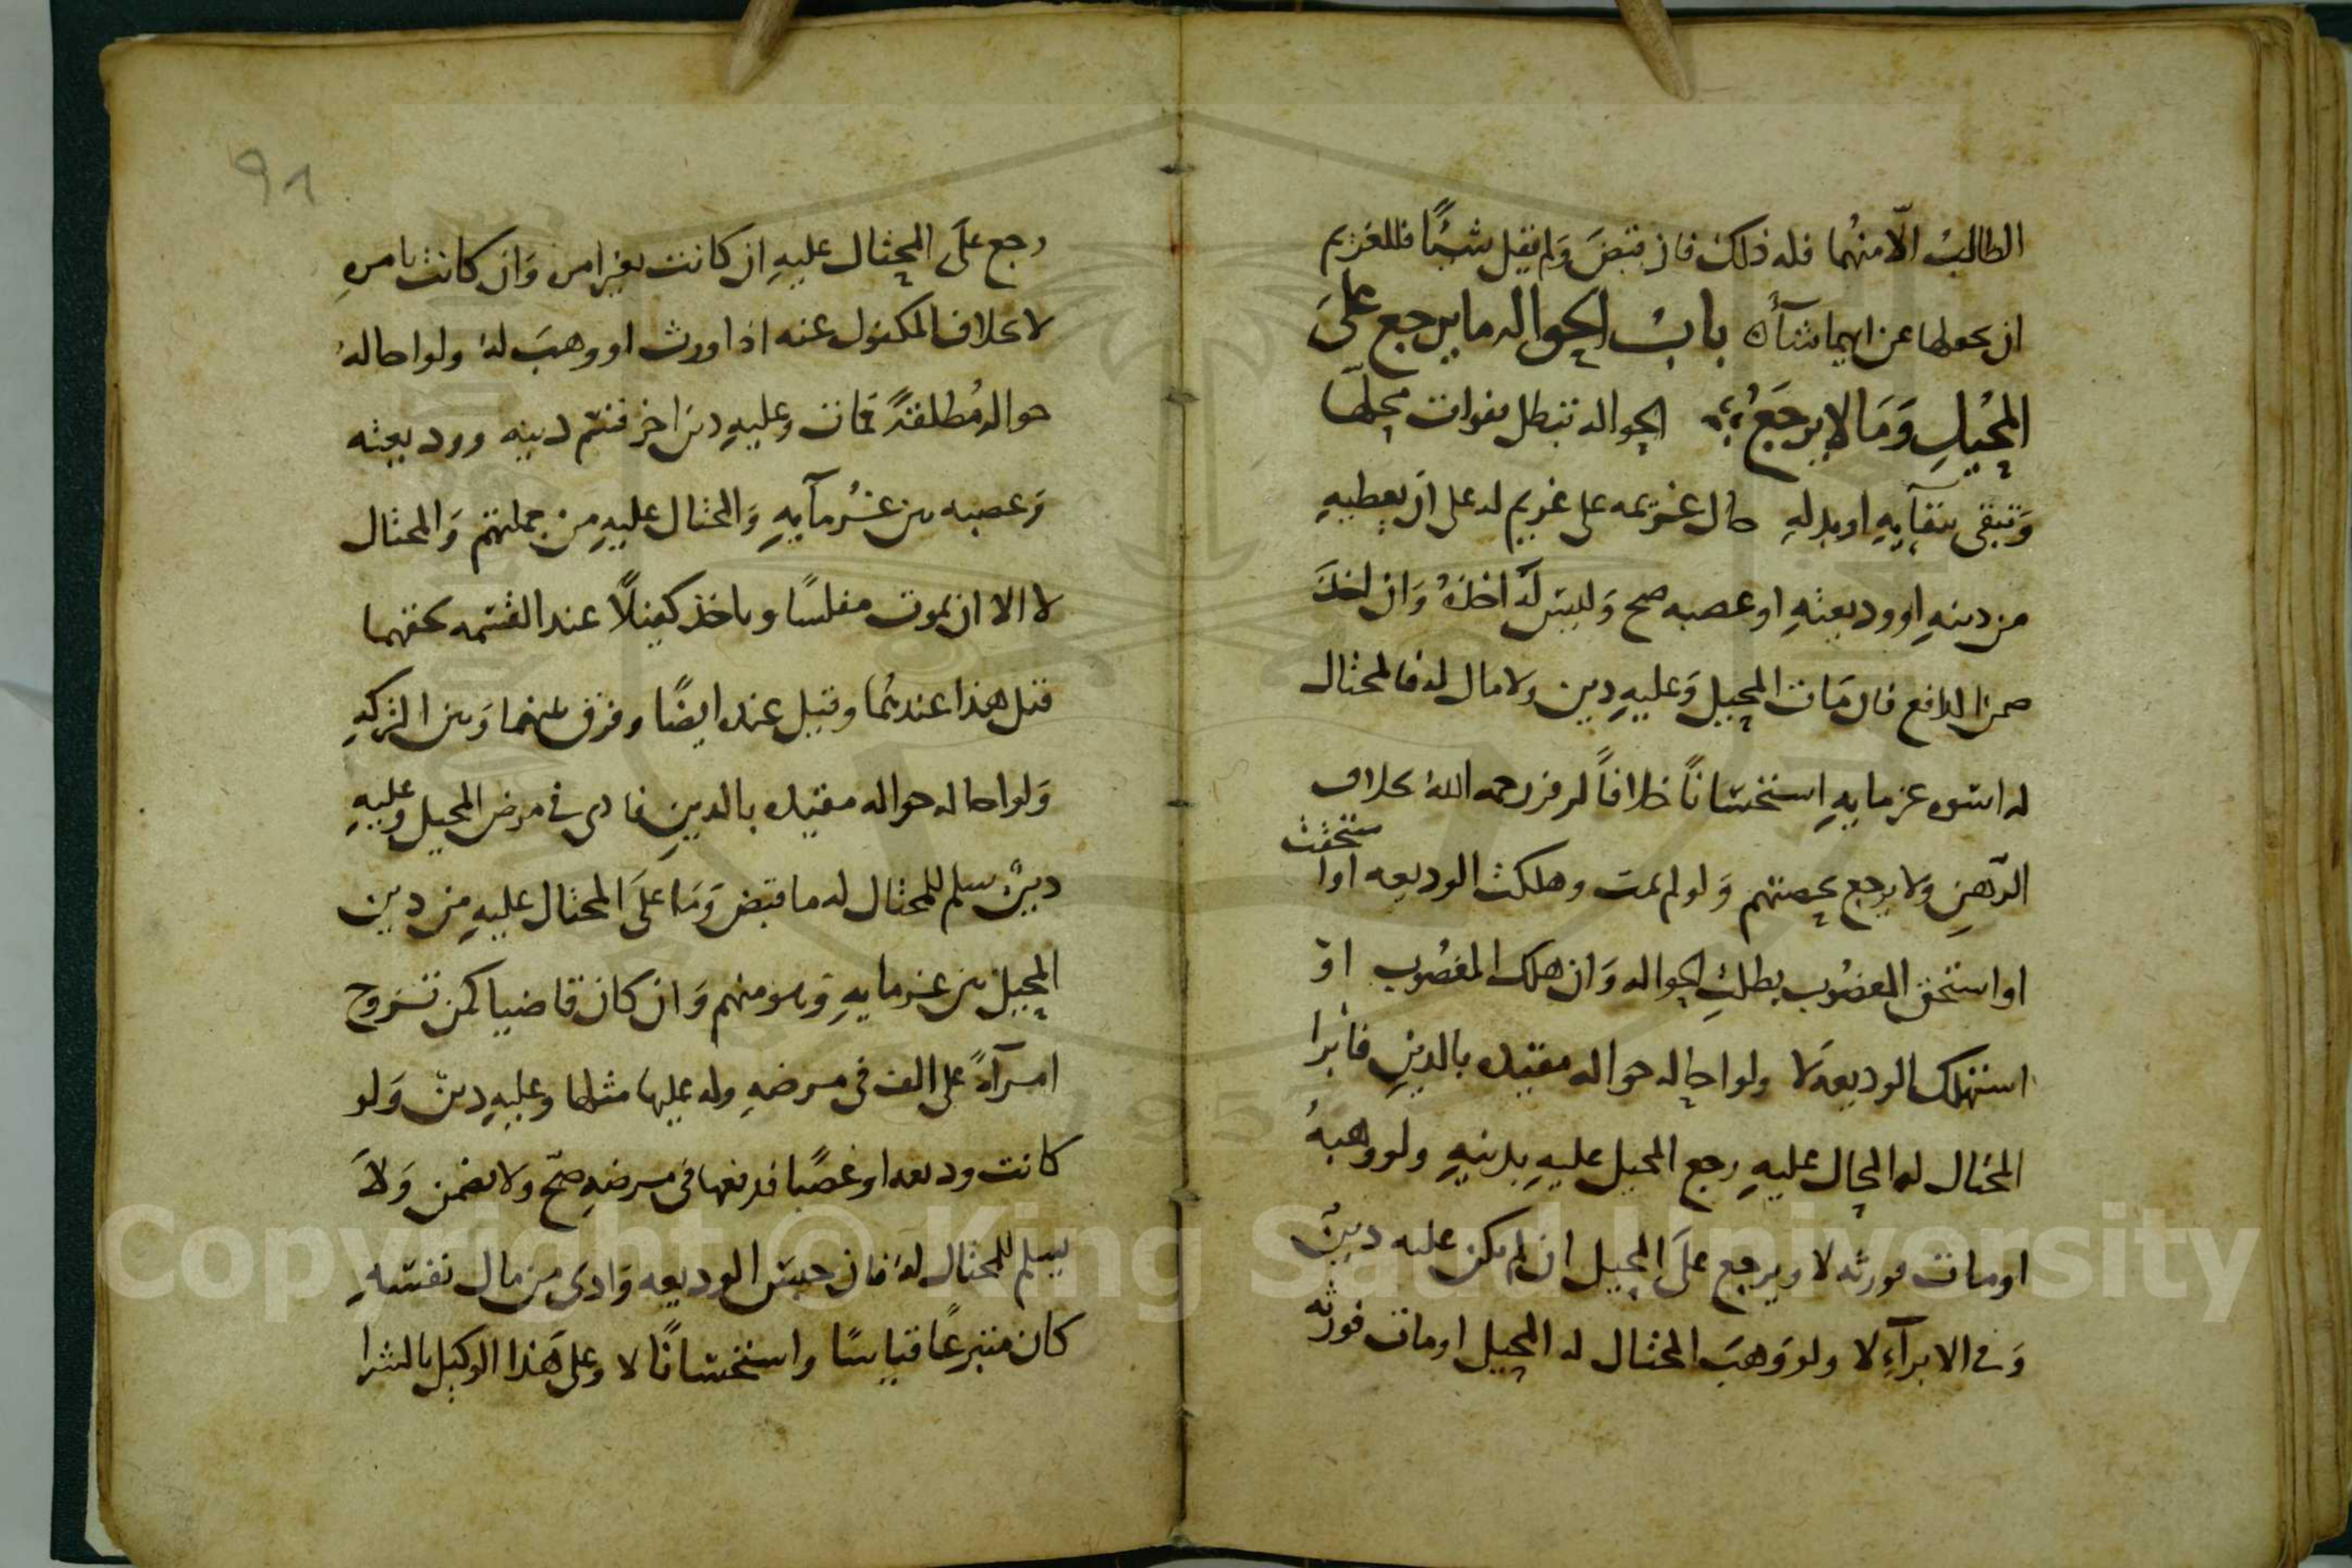 الطالبُ الّا منهُما فله ذلك فان قبضَ وَلم يقل شيئًا فللغريم
ان يجعلها عن ايهما شآء بابُ الحواله ما يرجع علىَ
المحُيلِ وَمَا لا يرجَعُ الحواله تبطل بفوات محلّها
وَتبقى ببقآيهِ او بدلهِ حال غريمه على غريم له على ان يعطيهِ
من دينهِ او وديعتهِ او غصبه صح وَليسَ لهَ اخذهُ وَان اخذَ
ضمن الدافع فان مَات المحيل وَعليهِ دين ولا مال له فالمحتال
له اسوه غرمايهِ استحسَانًا خلافاً لزفر رحمه اللهُ بخلاف
الرّهنِ ولا يرجع بحصتهم وَلو لم يمت وهلكت الوديعه او استحقت
او استحق المغصُوب بطلتِ الحواله وَان هلك المغصُوب اوْ
استهلك الوديعه لَا ولو احاله حواله مقيده بالدينِ فابرا
المحتال له المحال عليهِ رجع المحيل عليهِ بدينهِ ولو وهبهُ
او مات فورثه لا ويرجع علىَ المحيل ان لم يكن عليه دينٌ
وَفى الابرآءِ لا ولو وَهبَ المحتال له المحيل او مات فورثه
91
رجع علىَ المحتال عليهِ ان كانت بغير امرِ وَان كانت بامرهِ
لا بخلاف المكفول عنه اذا ورث او وهبَ لهُ ولو احاله
حواله مُطلقةً فمات وعليهِ دين اخر قسّم دينه ووديعته
وَغصبه بين غرُمآيهِ وَالمحتال عليهِ من جملتهم وَالمحتال
لا الا ان يموت مفلسًا وياخذ كفيلًا عند القسمه بحقهما
قيل هذا عندهُما وقيل عنده ايضًا وفرق بينهما وَبين التركهِ
وَلو احاله حواله مقيده بالدينِ فادى فى مرض المحيل وعليهِ
دينٌ سلم للمحتال له ما قبض وَمَا علىَ المحتال عليهِ من دين
المحيل بين غرمايهِ وَهو منهم وَان كان قاضيا كمن تزوج
امرآةً على الف فى مرضهِ وله عليها مثلها وعليهِ دينٌ وَلو
كانت وديعه او غصبًا فدفعها فى مرضهِ صحّ ولا يضمن وَلاَ
يسلم للمحتال لهُ فان حبسَ الوديعه وَادى من مال نفسَهِ
كان متبرعًا قياسًا واستحسَانًا لا وعلى هَذا الوكيل بالشرا
Copyright © King Saud University